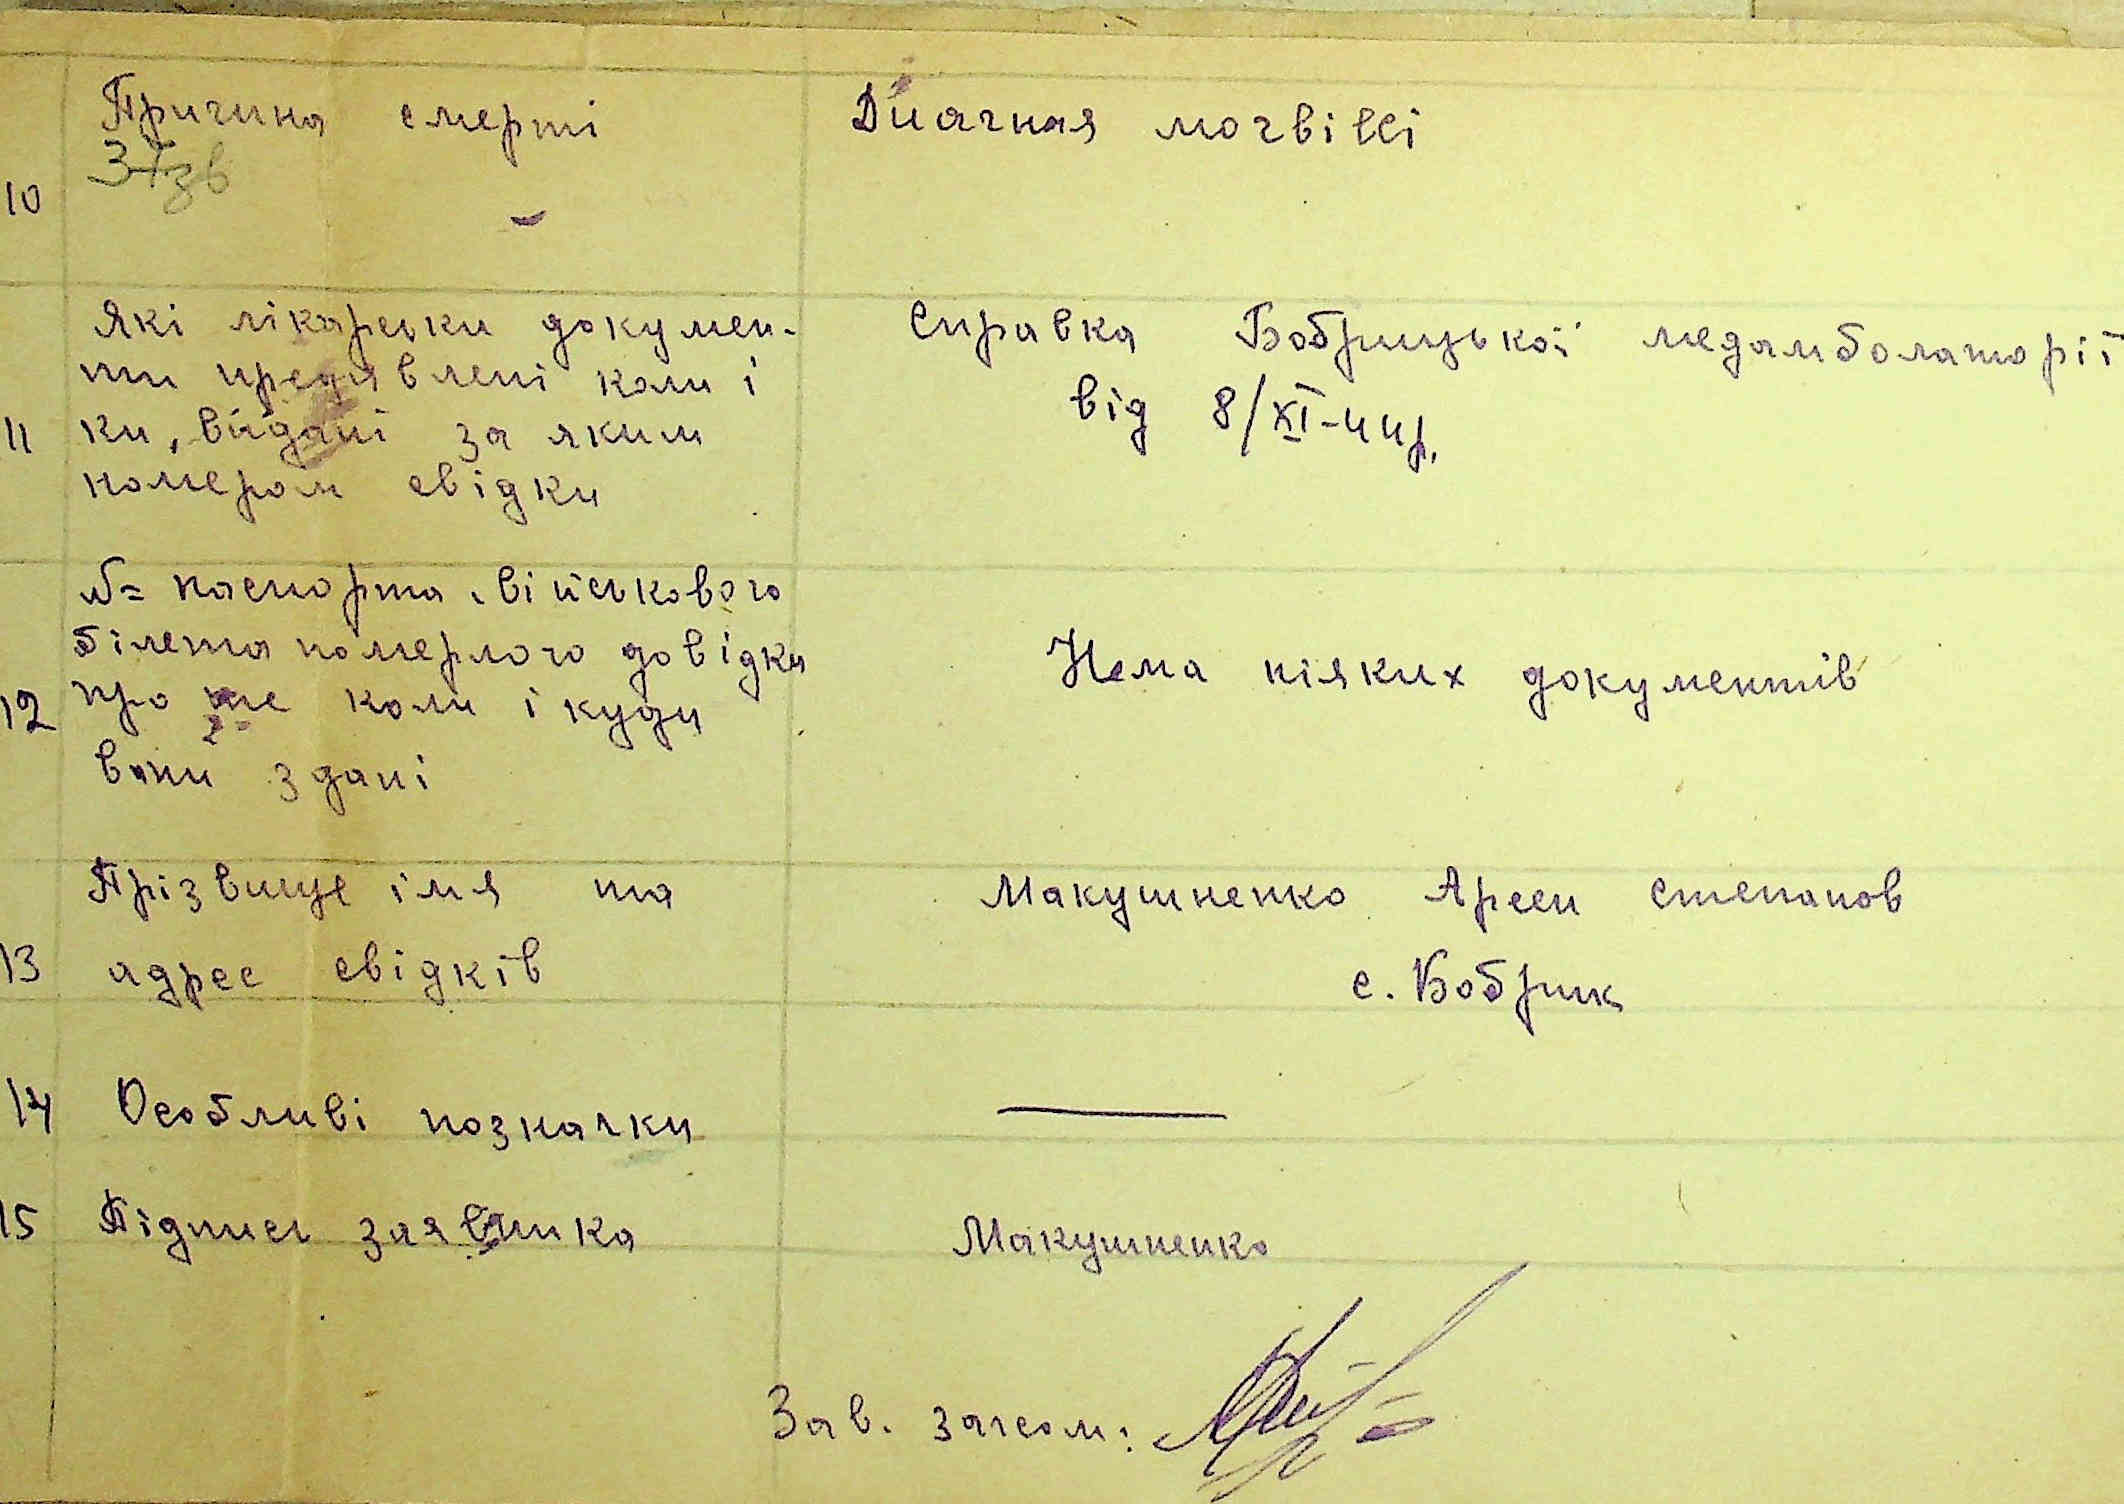 Причина смерті
Диагная могвіссі
10
Які лікарськи докумен-
ти предявлені коли і
11 ки, видані за яким
номером свідки
Справка Бобрицькой медамболаторії
від 8/XI-44р.
№ паспорта, військового
білета померлого довідка
12 про те коли і куди
вони здані
Нема ніяких документів
Прізвище імя та
13 адрес свідків
Макушненко Арсен степанов
с. Бобрик
14 Особливі позначки
15 Підпись заявника
Макушненко
Зав. загсом: